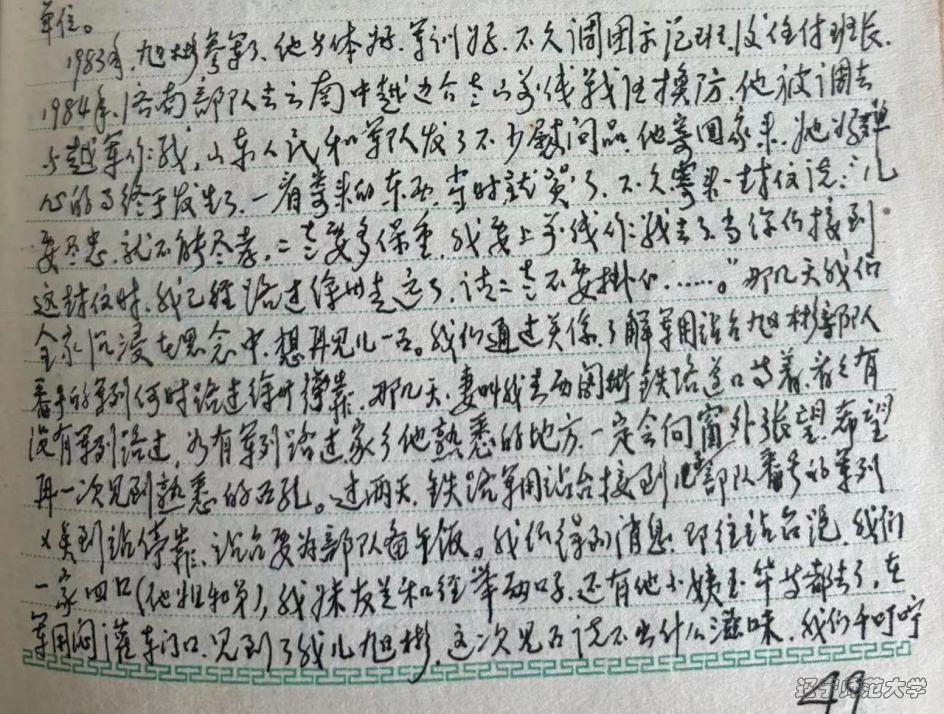 单位。
1983年,旭彬参军了,他身体好,军训好,不久调团示范班,后任付班长,
1984年,济南部队去云南中越边界老山前线战斗换防,他被调去
与越军作战,山东人民和军队发了不少慰问品,他寄回家来,她好担
心的事终于发生了,一看寄来的东西,当时就哭了,不久寄来一封信说:"儿
要尽忠,就不能尽孝,二老要多保重,我要上前线作战去了,当你们接到
这封信时,我已经路过徐州走远了,请二老不要掛心……。"那几天我们
全家沉浸在思念中,想再见儿一面。我们通过关係,了解军用站台旭彬部队
番号的军列何时路过徐州停靠,那几天,妻叫我去西阁街铁路道口等着,看看有
没有军列路过,如有军列路过家乡他熟悉的地方,一定会向窗外张望,希望
再一次见到熟悉的面孔。过两天,铁路军用站台接到儿部队番号的军列
火车到站停靠,站台要为部队备午饭。我们得到消息,即往站台跑,我们
一家四口(他姐和弟),我妹友兰和经举两口子,还有他小姨玉华等都去了,在
军用闷罐车门口,见到了我儿旭彬,这次见面说不出什么滋味,我们千叮咛
49
辽宁师范大学